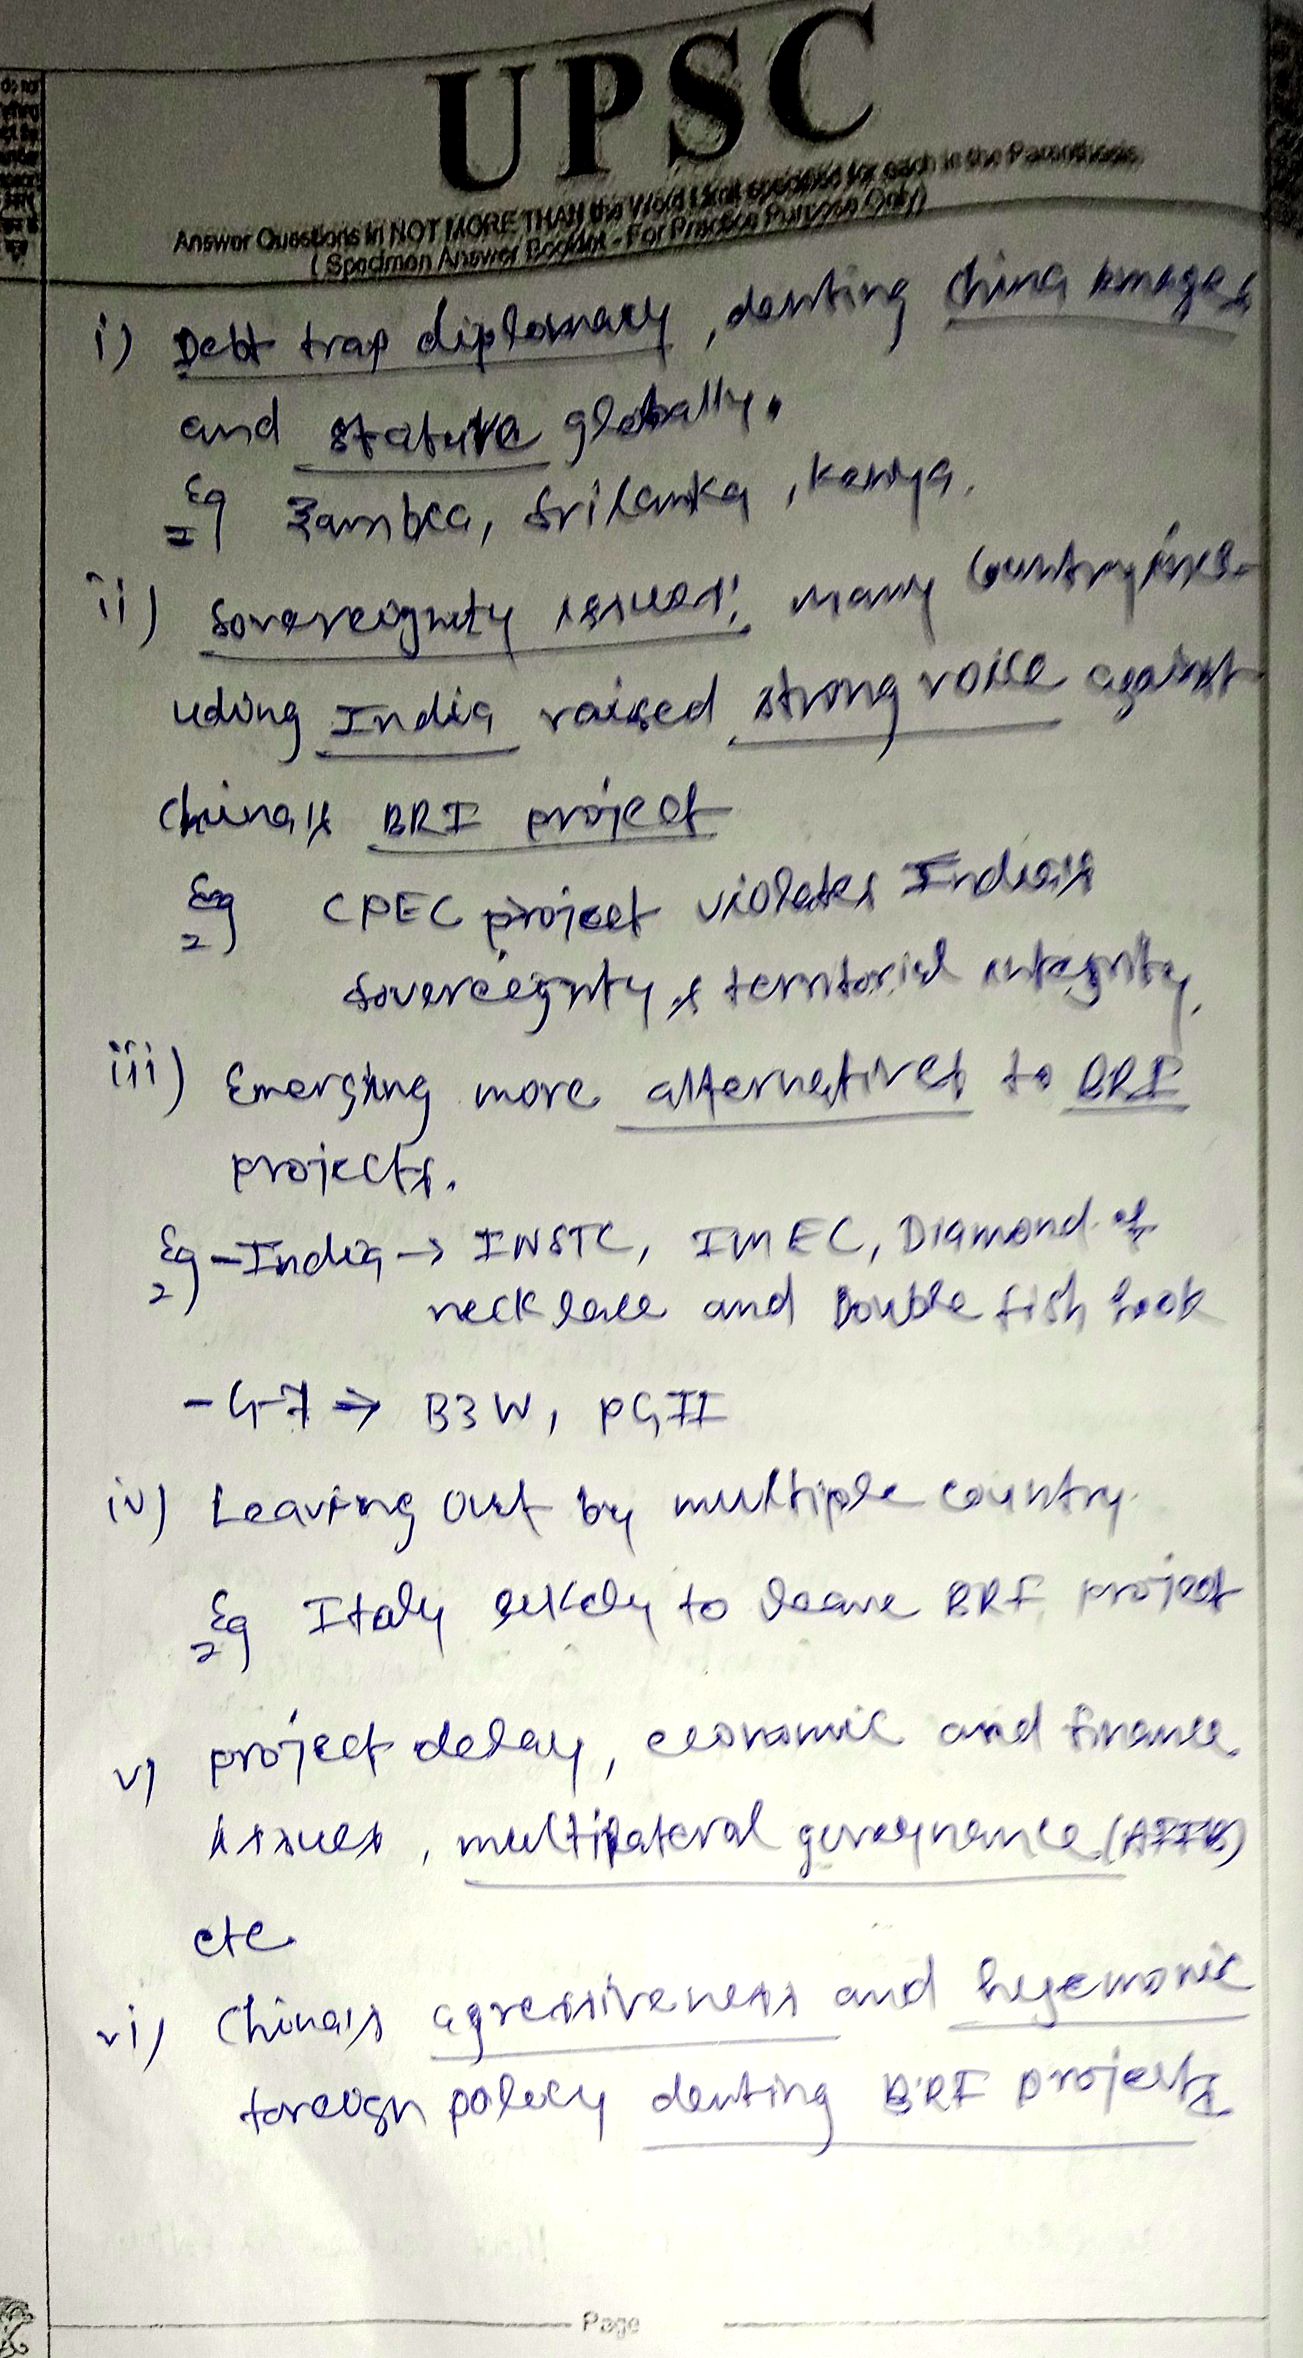 UPSC
Answer Questions in NOT MORE THAN the Word Limit specified for each in the Parenthesis.
( Specimen Answer Booklet - For Practice Purpose Only)
i) Debt trap diplomacy, denting China images
and stature globally.
Eg Zambia, Srilanka, Kenya.
ii) Sovereignty issues; many country incl-
uding India raised strong voice against
China's BRI project
Eg CPEC project violates India's
sovereignty & territorial integrity.
iii) Emerging more alternatives to BRI
projects.
Eg - India → INSTC, IMEC, Diamond of
necklace and Double fish hook
- G-7 → B3W, PGII
iv) Leaving out by multiple country.
Eg Italy likely to leave BRI project
v) project delay, economic and finance
issues, multilateral governance (AIIB)
etc
vi) China's agressiveness and hegemonic
foreign policy denting BRI projects
Page